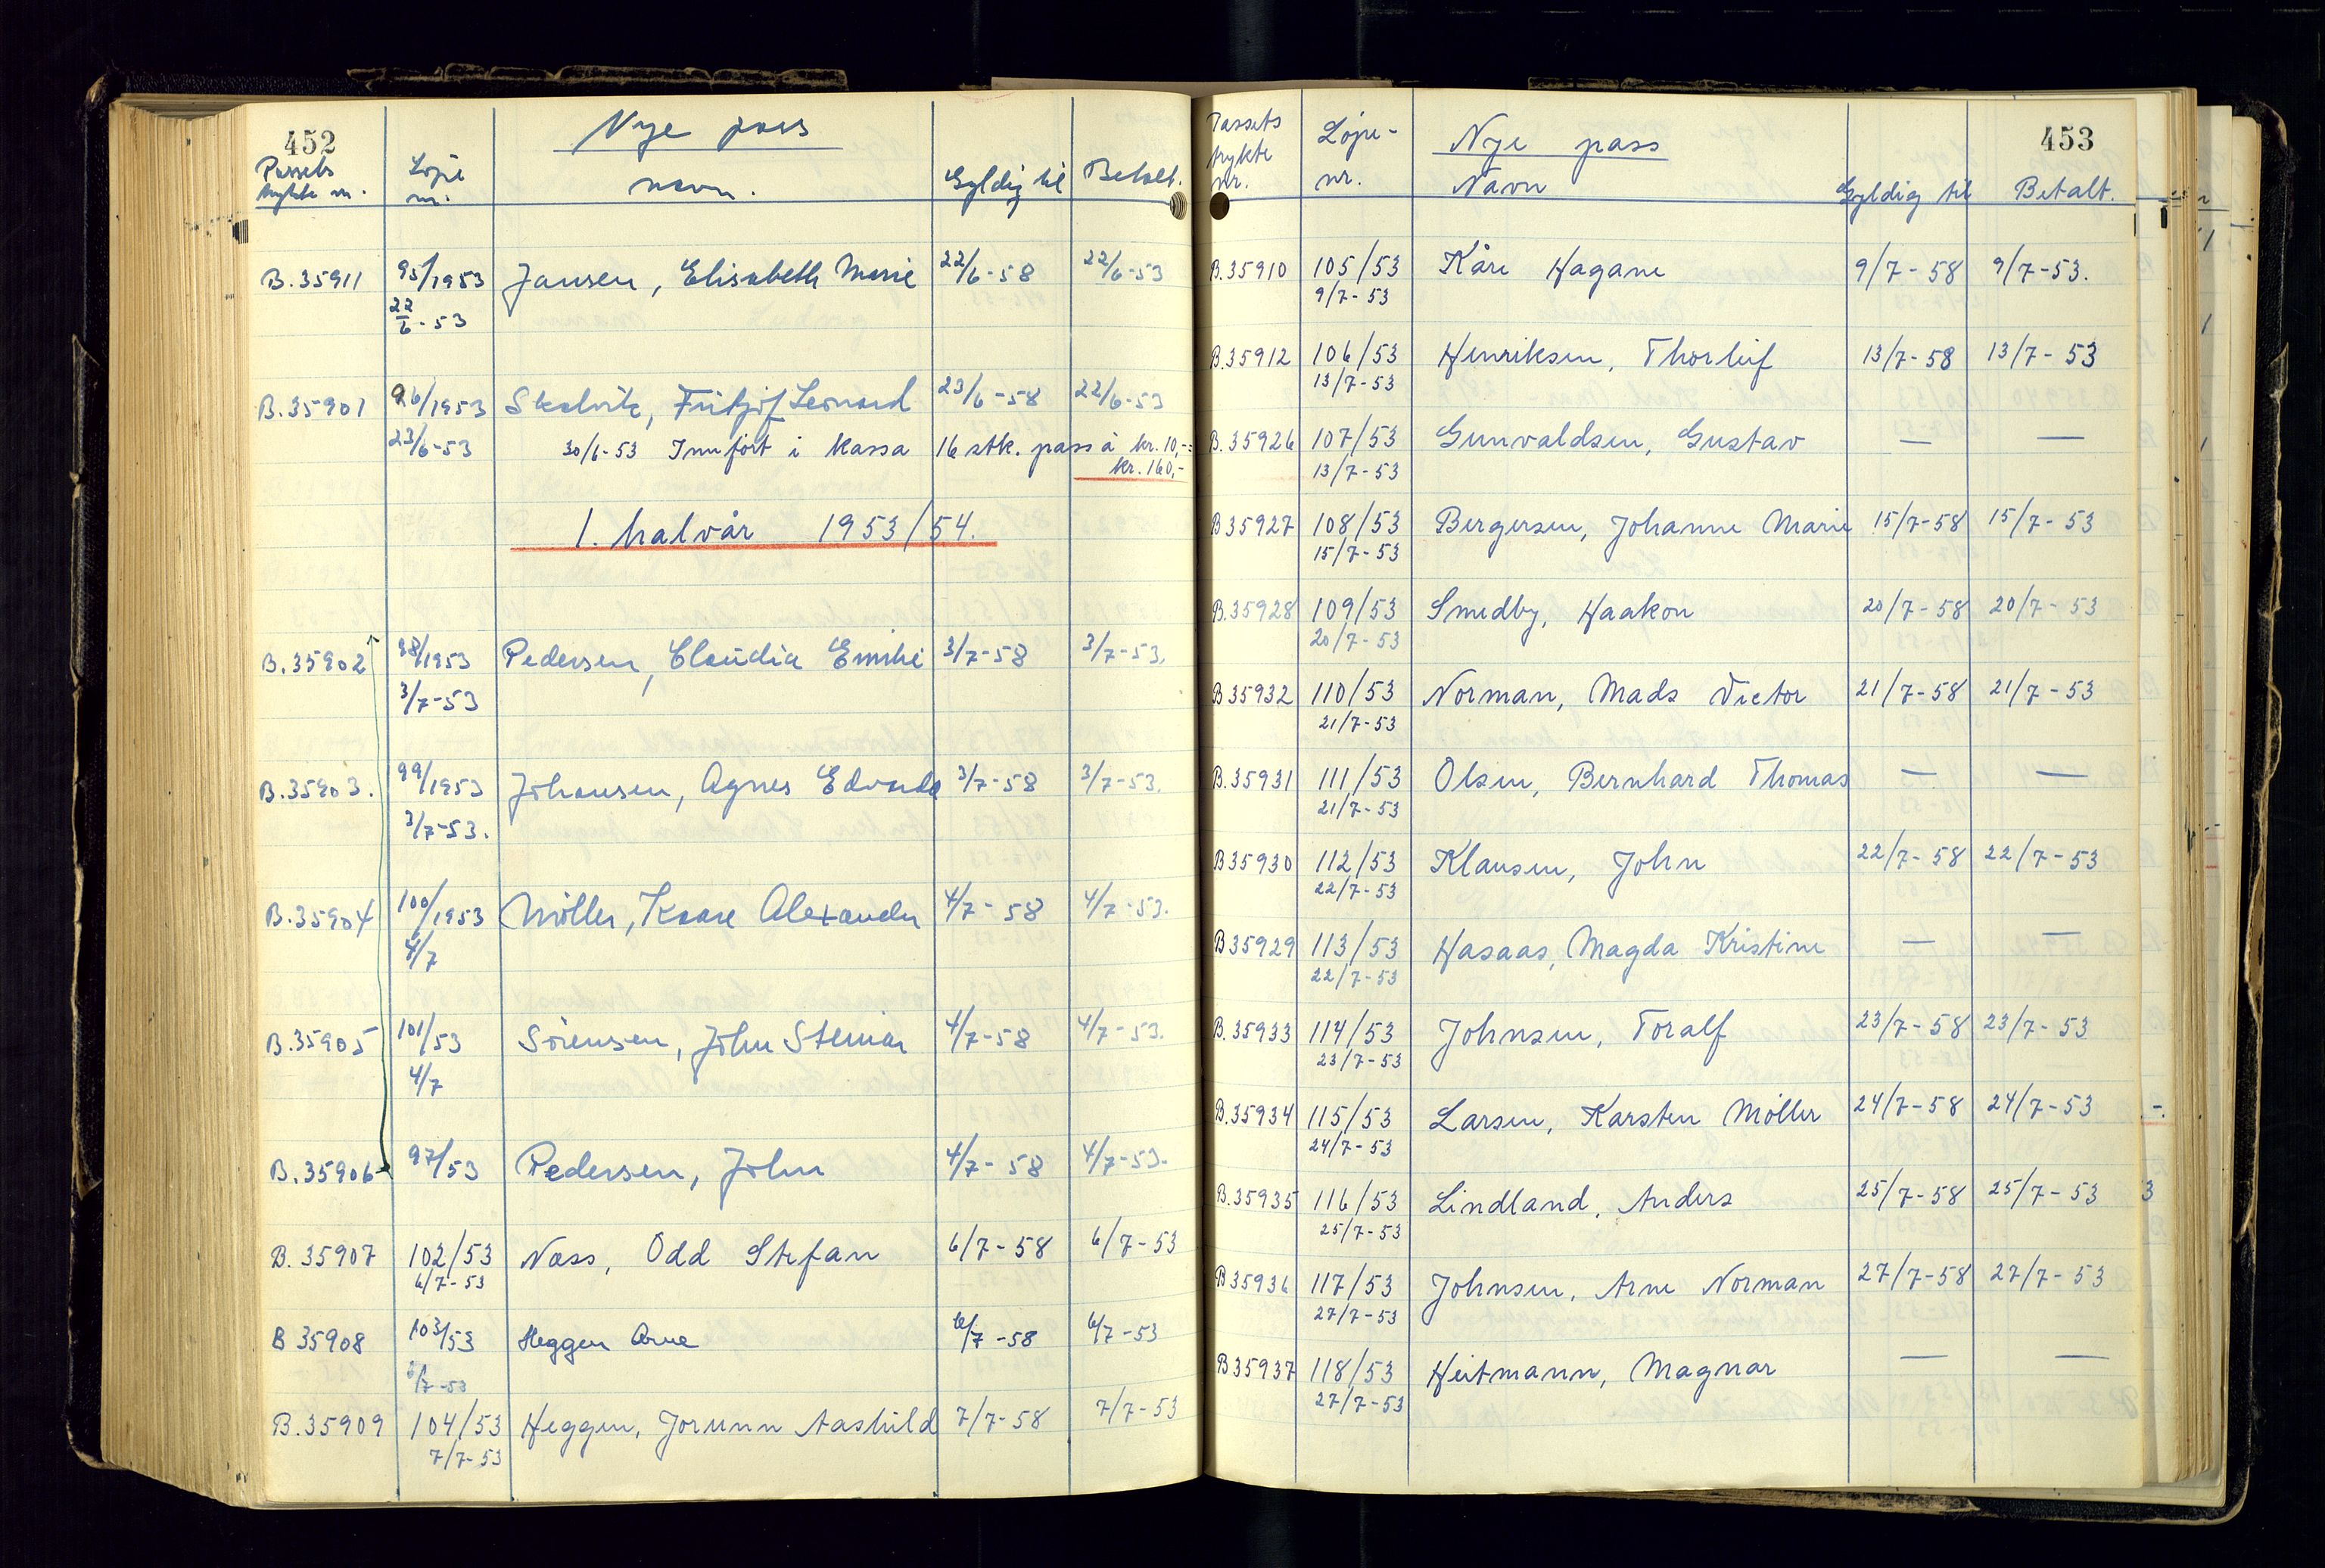 452
Nye pass
Passets
trykte nr.
Løpe
nr.
navn.
Gyldig til
Betalt.
B.35911 95/1953 Jansen, Elisabeth Marie 22/6-58 22/6-53
22/6-53
B.35901 96/1953 Skalvik, Fritjof Leonard 23/6-58 22/6-53
23/6-53 30/6-53 Innført i kassa 16 stk. pass à kr. 10,-=
kr. 160,-
1. halvår 1953/54.
B.35902 98/1953 Pedersen, Claudia Emilie 3/7-58 3/7-53.
3/7-53
B.35903. 99/1953 Johansen, Agnes Edvarda 3/7-58 3/7-53.
3/7-53.
B.35904 100/1953 Møller, Kaare Alexander 4/7-58 4/7-53.
4/7
B.35905 101/53 Sörensen, John Steinar 4/7-58 4/7-53.
4/7
B.35906 97/53 Pedersen, John 4/7-58 4/7-53.
B.35907 102/53 Næss, Odd Stefan 6/7-58 6/7-53
6/7-53
B 35908 103/53 Heggen Arne 6/7-58 6/7-53
6/7-53
B.35909 104/53 Heggen, Jorunn Aashild 7/7-58 7/7-53
7/7-53
453
Passets
trykte
nr.
Löpe-
nr.
Nye pass
Navn
Gyldig til
Betalt.
B.35910 105/53 Kåre Hagane 9/7-58 9/7-53.
9/7-53
B.35912 106/53 Henriksen, Thorleif 13/7-58 13/7-53
13/7-53
B.35926 107/53 Gunvaldsen, Gustav — —
13/7-53
B35927 108/53 Bergersen, Johanne Marie 15/7-58 15/7-53
15/7-53
B.35928 109/53 Smedby, Haakon 20/7-58 20/7-53
20/7-53
B35932 110/53 Norman, Mads Victor 21/7-58 21/7-53
21/7-53
B.35931 111/53 Olsen, Bernhard Thomas — —
21/7-53
B35930 112/53 Klausen, John 22/7-58 22/7-53
22/7-53
B35929 113/53 Hasaas, Magda Kristine — —
22/7-53
B.35933 114/53 Johnsen, Toralf 23/7-58 23/7-53
23/7-53
B.35934 115/53 Larsen, Karsten Möller 24/7-58 24/7-53
24/7-53
B.35935 116/53 Lindland, Anders 25/7-58 25/7-53
25/7-53
B35936 117/53 Johnsen, Arne Norman 27/7-58 27/7-53
27/7-53
B35937 118/53 Heitmann, Magnar — —
27/7-53